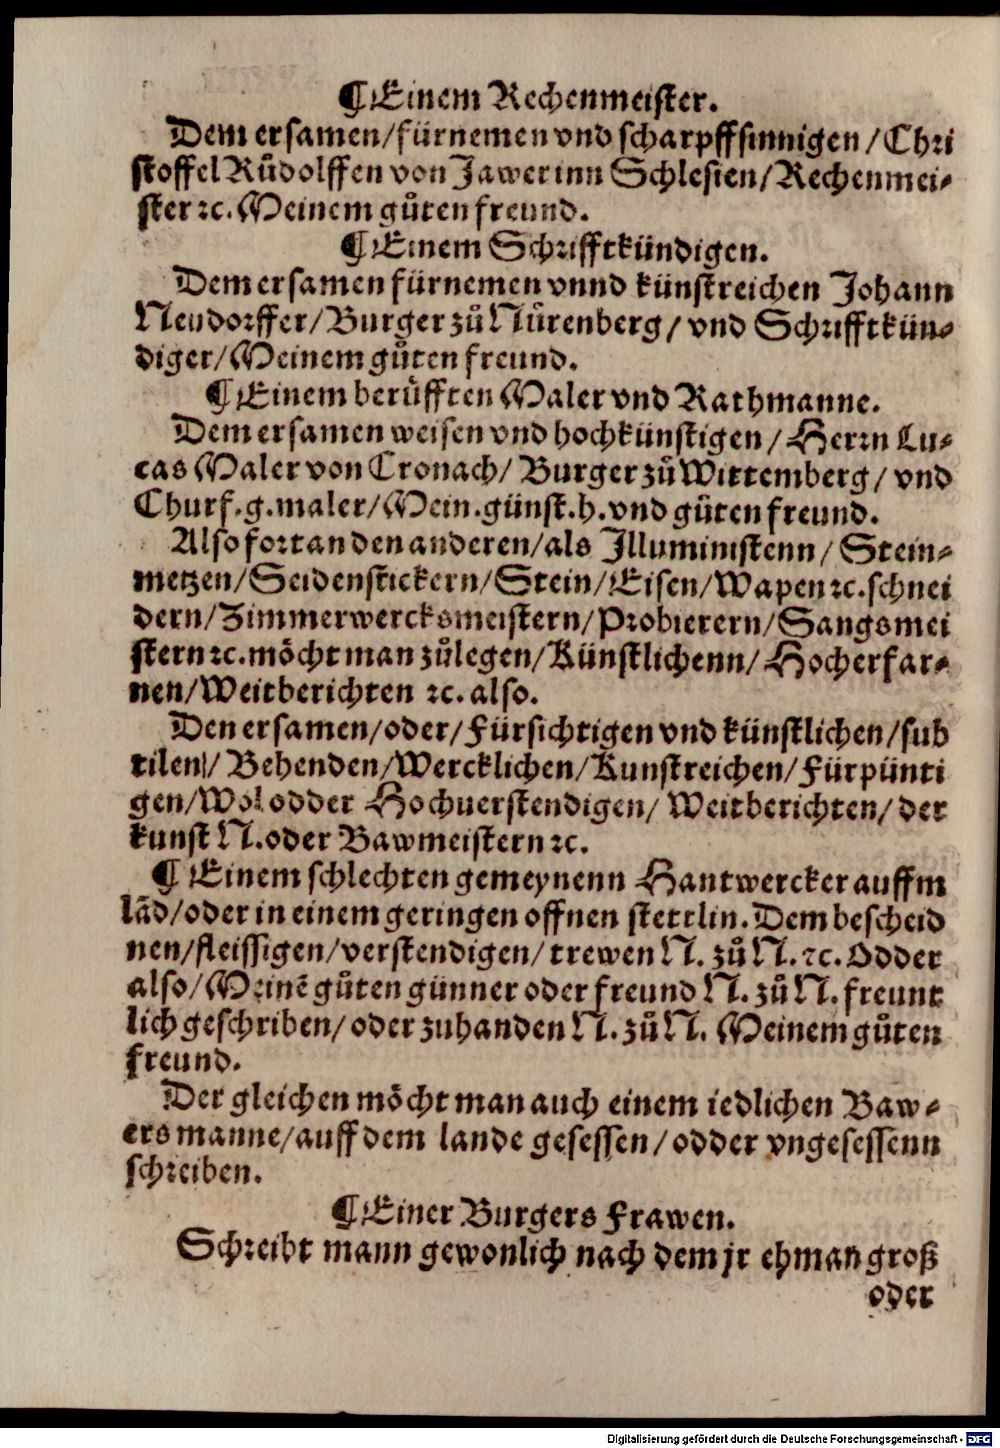 ¶ Einem Rechenmeister.
Dem ersamen/fürnemen vnd scharpffsinnigen/Chri
stoffel Růdolffen von Jawer inn Schlesien/Rechenmei⸗
ster ꝛc. Meinem gůten freund.
¶ Einem Schrifftkündigen.
Dem ersamen fürnemen vnnd künstreichen Johann
Neudorffer/Burger zů Nůrenberg/vnd Schrifftkün⸗
diger/Meinem gůten freund.
¶ Einem berůfften Maler vnd Rathmanne.
Dem ersamen weisen vnd hochkünstigen/Herrn Lu⸗
cas Maler von Cronach/Burger zů Wittemberg/vnd
Churf.g.maler/Mein.günst.h.vnd gůten freund.
Also fort an den anderen/als Illuministenn/Stein⸗
metzen/Seidenstickern/Stein/Eisen/Wapen ꝛc.schnei
dern/Zimmerwercksmeistern/Probierern/Sangsmei
stern ꝛc.möcht man zůlegen/Künstlichenn/Hocherfar⸗
nen/Weitberichten ꝛc. also.
Den ersamen/oder/Fürsichtigen vnd künstlichen/sub
tilen/Behenden/Wercklichen/Kunstreichen/Fürpünti
gen/Wol odder Hochuerstendigen/Weitberichten/der
kunst N.oder Bawmeistern ꝛc.
¶ Einem schlechten gemeynenn Hantwercker auffm
lãd/oder in einem geringen offnen stettlin.Dem bescheid
nen/fleissigen/verstendigen/trewen N. zů N. ꝛc. Odder
also/Meinẽ gůten günner oder freund N. zů N. freunt
lich geschriben/oder zuhanden N. zů N. Meinem gůten
freund.
Der gleichen möcht man auch einem iedlichen Baw⸗
ers manne/auff dem lande gesessen/odder vngesessenn
schreiben.
¶ Einer Burgers Frawen.
Schreibt mann gewonlich nach dem jr ehman groß
oder
Digitalisierung gefördert durch die Deutsche Forschungsgemeinschaft - DFG